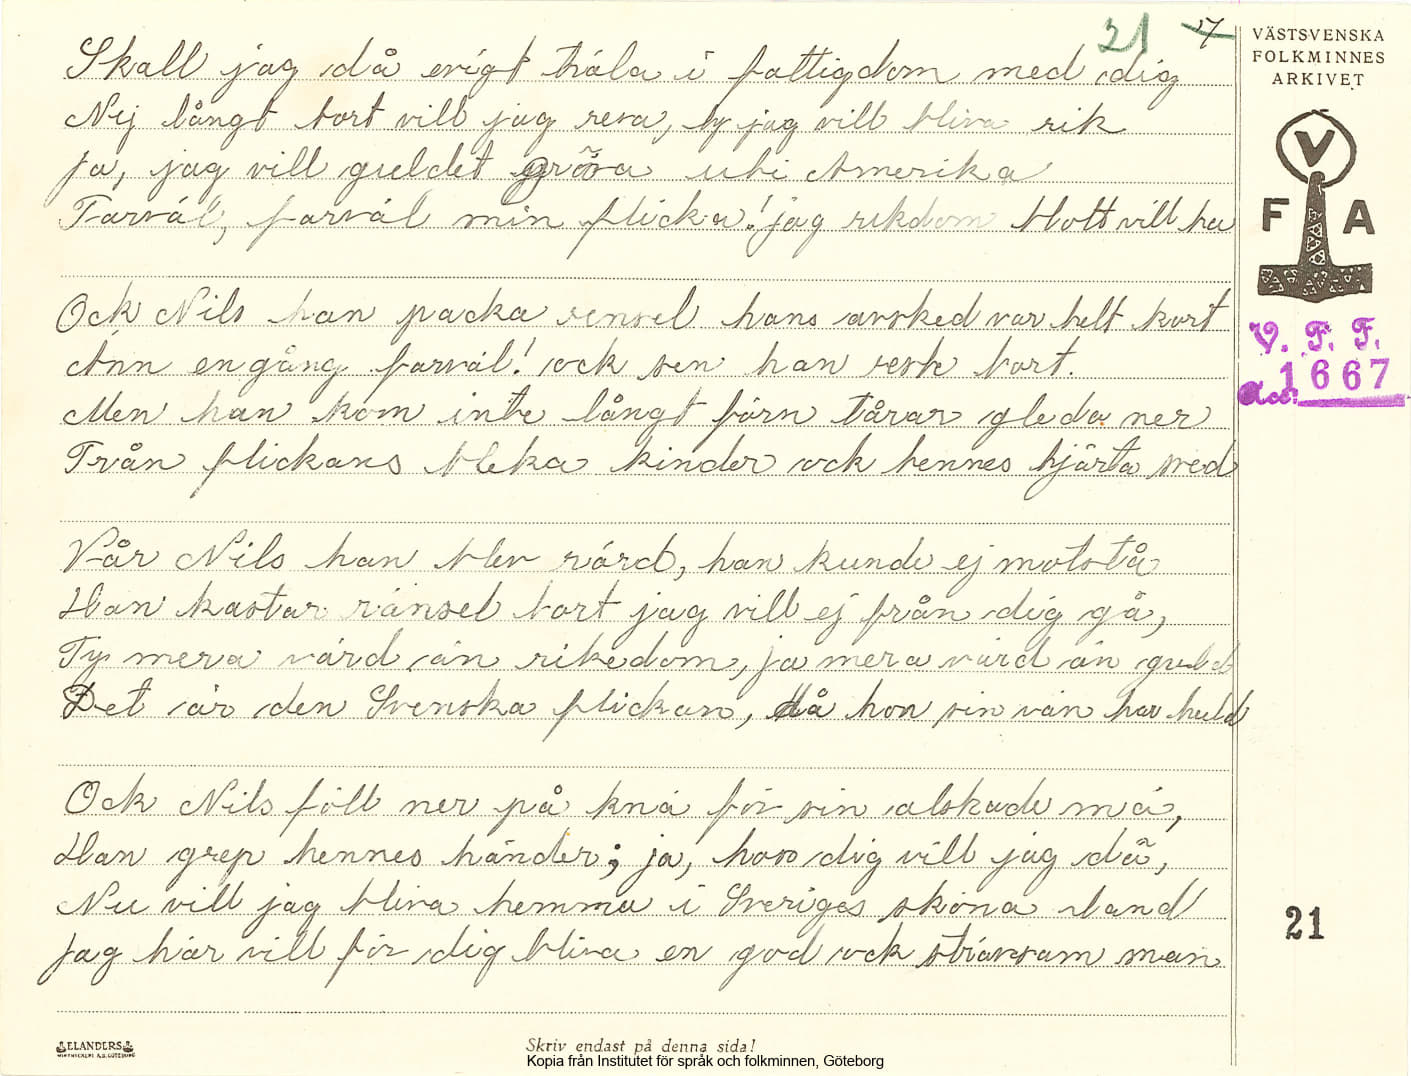 21 7
VÄSTSVENSKA
FOLKMINNES
ARKIVET
Skall jag då evigt träla i fattigdom med dig
Nej långt bort vill jag resa, ty jag vill bliva rik
Ja, jag vill guldet gräva uti Amerika
Farväl, farväl min flicka! jag rikdom blott vill ha
V
F A
Ock Nils han packa rensel hans avsked var helt kort
Änn en gång farväl! ock sen han reste bort.
Men han kom inte långt förn tårar gleda ner
Från flickans bleka kinder ock hennes hjärta sved
V. F. F.
Acc. 1667
Vår Nils han blev rörd, han kunde ej motstå
Han kastar ränsel bort jag vill ej från dig gå,
Ty mera värd än rikedom, ja mera värd än guld
Det är den Svenska flickan, då hon sin vän har huld
Ock Nils föll ner på knä för sin älskade mä,
Han grep hennes händer; ja, hos dig vill jag dö,
Nu vill jag bliva hemma i Sveriges sköna land
Jag här vill för dig bliva en god ock strävsam man
21
ELANDERS
Skriv endast på denna sida!
Kopia från Institutet för språk och folkminnen, Göteborg